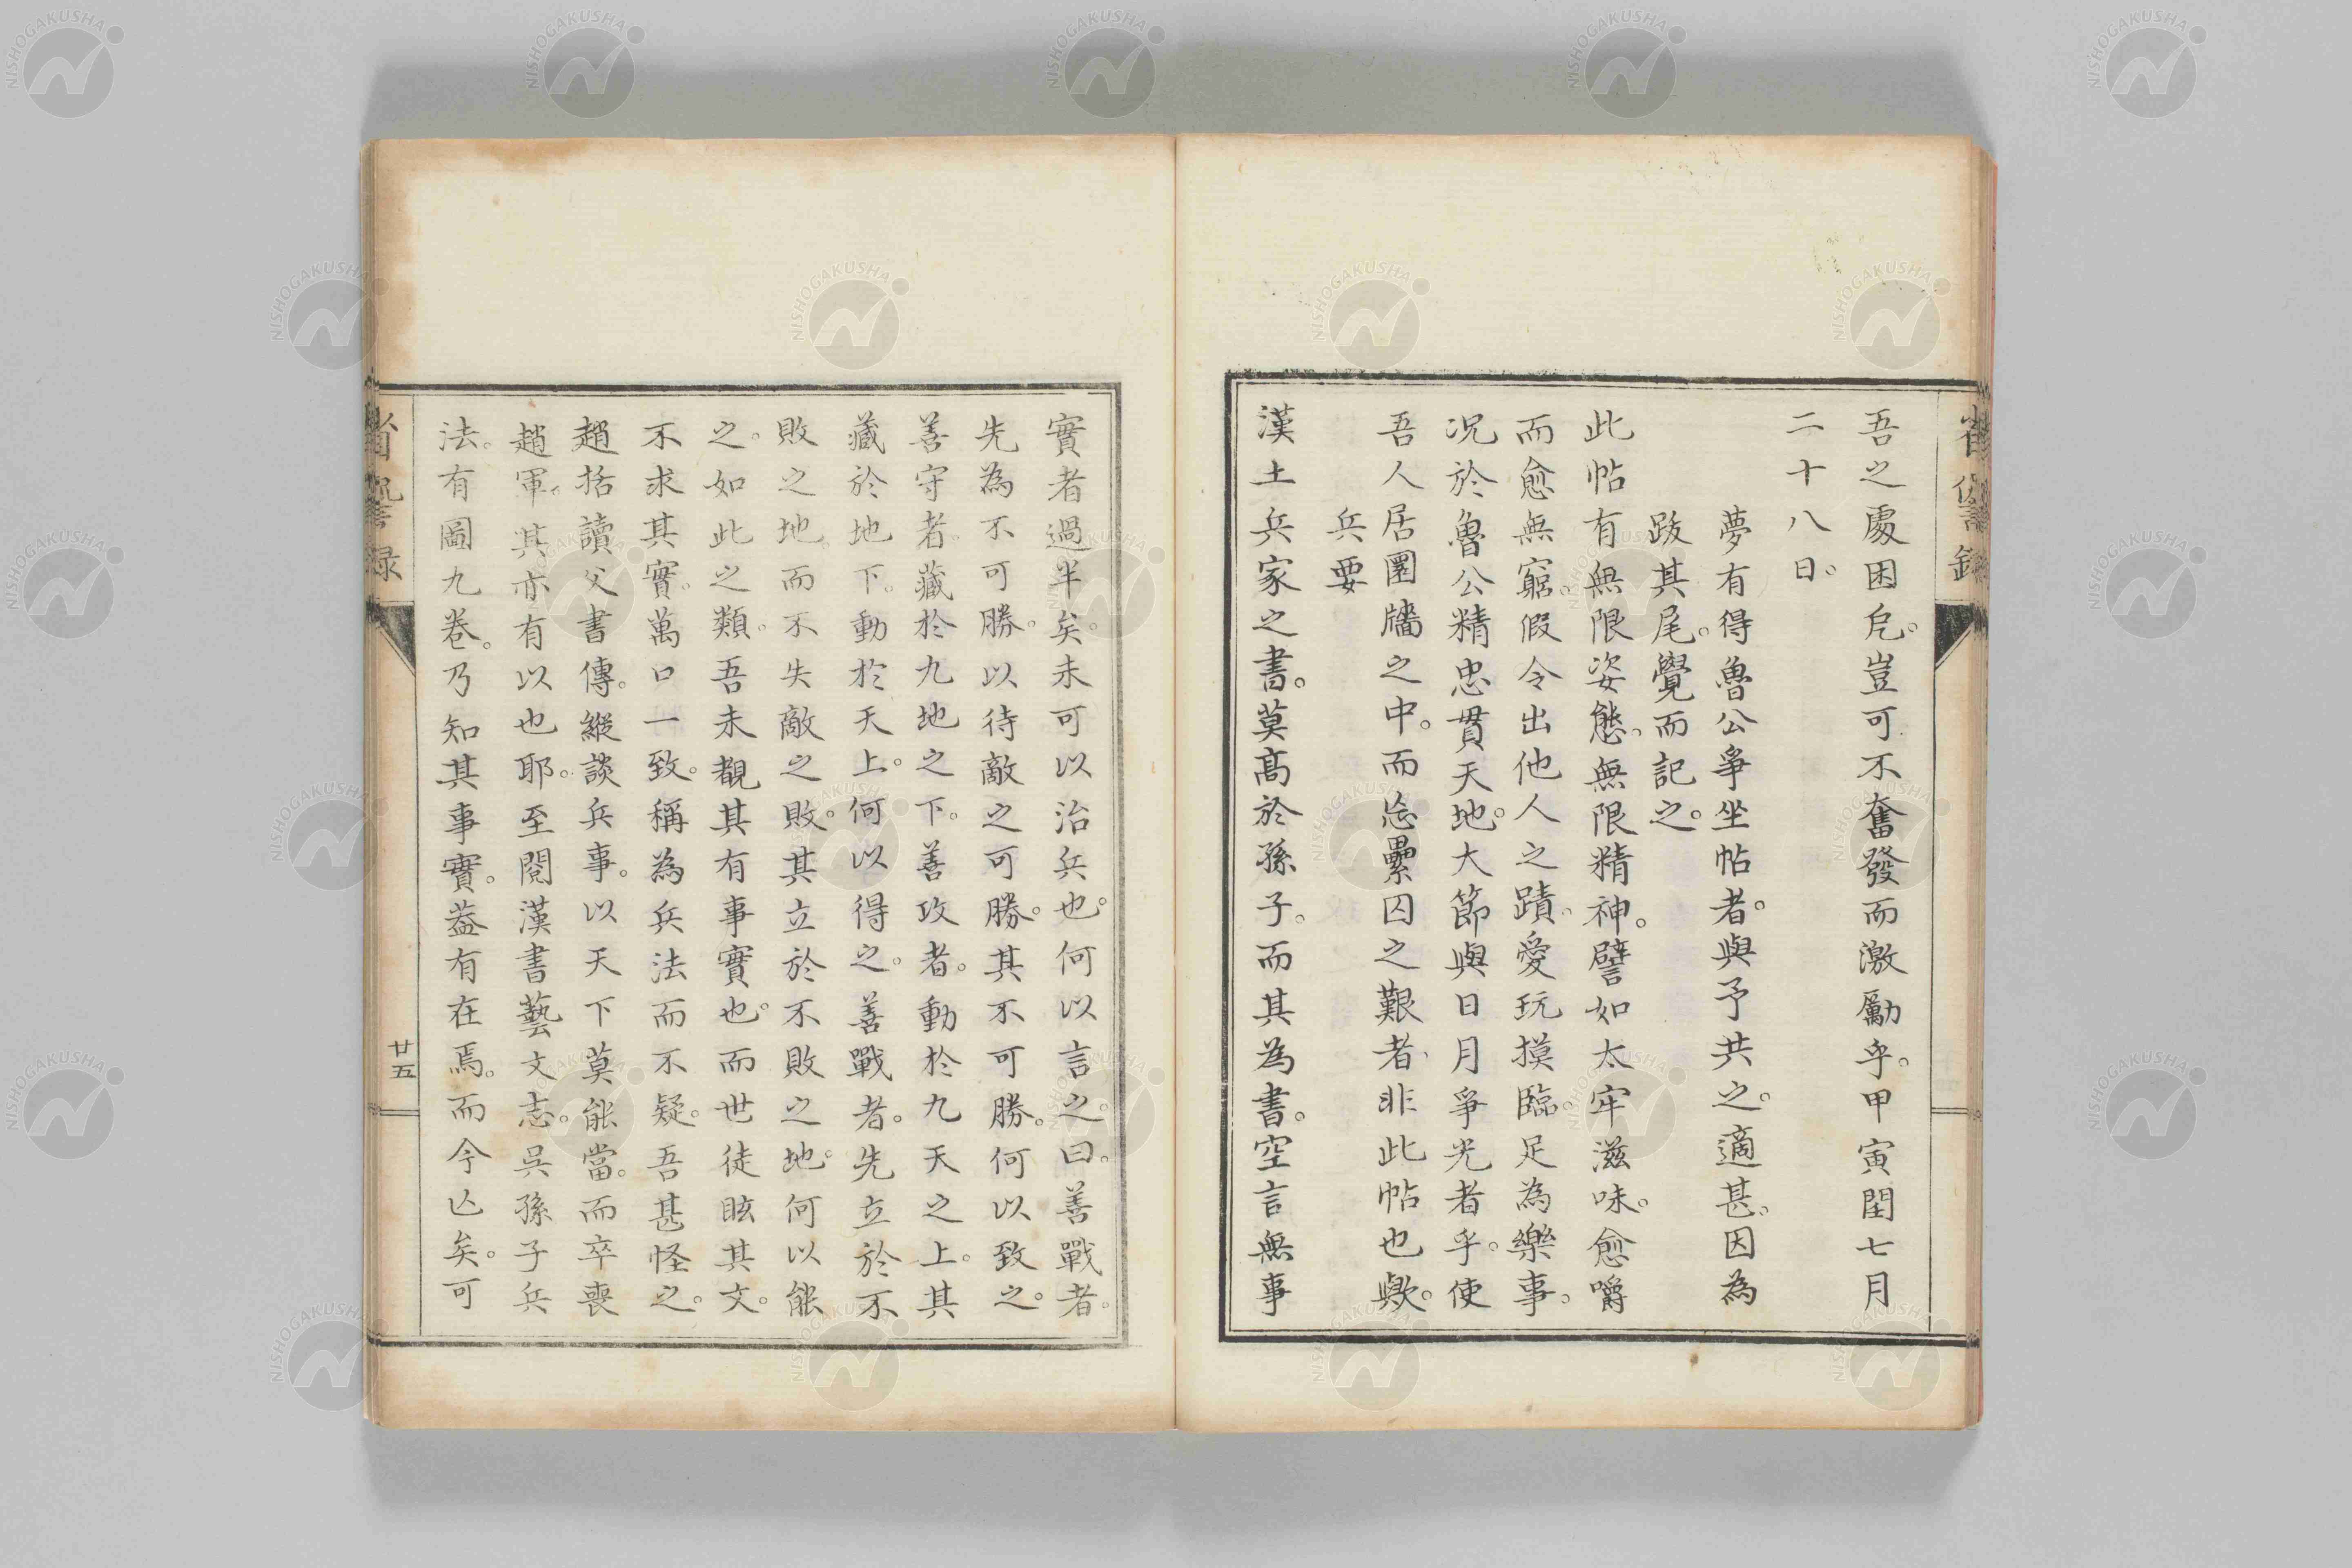 吾之處困戹。豈可不奮發而激勵乎。甲寅閏七月
二十八日。
夢有得魯公爭坐帖者。與予共之。適甚。因為
跋其尾。覺而記之。
此帖有無限姿態。無限精神。譬如太牢滋味。愈嚼
而愈無窮。假令出他人之蹟。愛玩摸臨。足為樂事。
况於魯公精忠貫天地。大節與日月爭光者乎。使
吾人居圜牆之中。而忘纍囚之艱者、非此帖也歟。
兵要
漢土兵家之書。莫髙於孫子。而其為書。空言無事
實者過半矣。未可以治兵也。何以言之。曰。善戰者。
先為不可勝。以待敵之可勝。其不可勝。何以致之。
善守者。藏於九地之下。善攻者。動於九天之上。其
藏於地下。動於天上。何以得之。善戰者。先立於不
敗之地。而不失敵之敗。其立於不敗之地。何以能
之。如此之類。吾未覩其有事實也。而世徒眩其文。
不求其實。萬口一致。稱為兵法而不疑。吾甚怪之。
趙括讀父書傳。縱談兵事。以天下莫能當。而卒喪
趙軍。其亦有以也耶。至閱漢書藝文志。吳孫子兵
法。有圖九卷。乃知其事實。葢有在焉。而今亾矣。可
省諐録
廿五
NISHOGAKUSHA